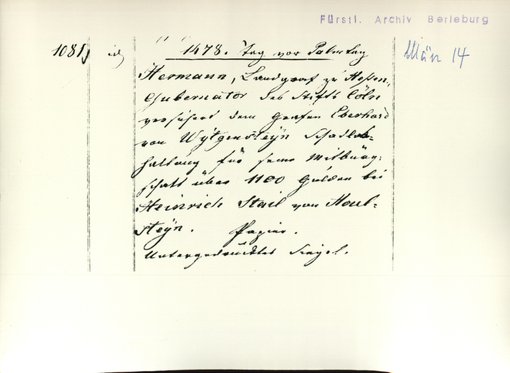 Fürstl. Archiv Berleburg
März 14
1478. Tag vor Palmtag
Hermann, Landgraf zu Hessen,
Gubernator des Stifts Cöln
versichert dem Grafen Eberhard
von Wytgensteyn Schadlos-
haltung für seine Mitbürg-
schaft über 1100 Gulden bei
Heinrich Stail von
steyn. Papier.
Untergedrücktes Siegel.